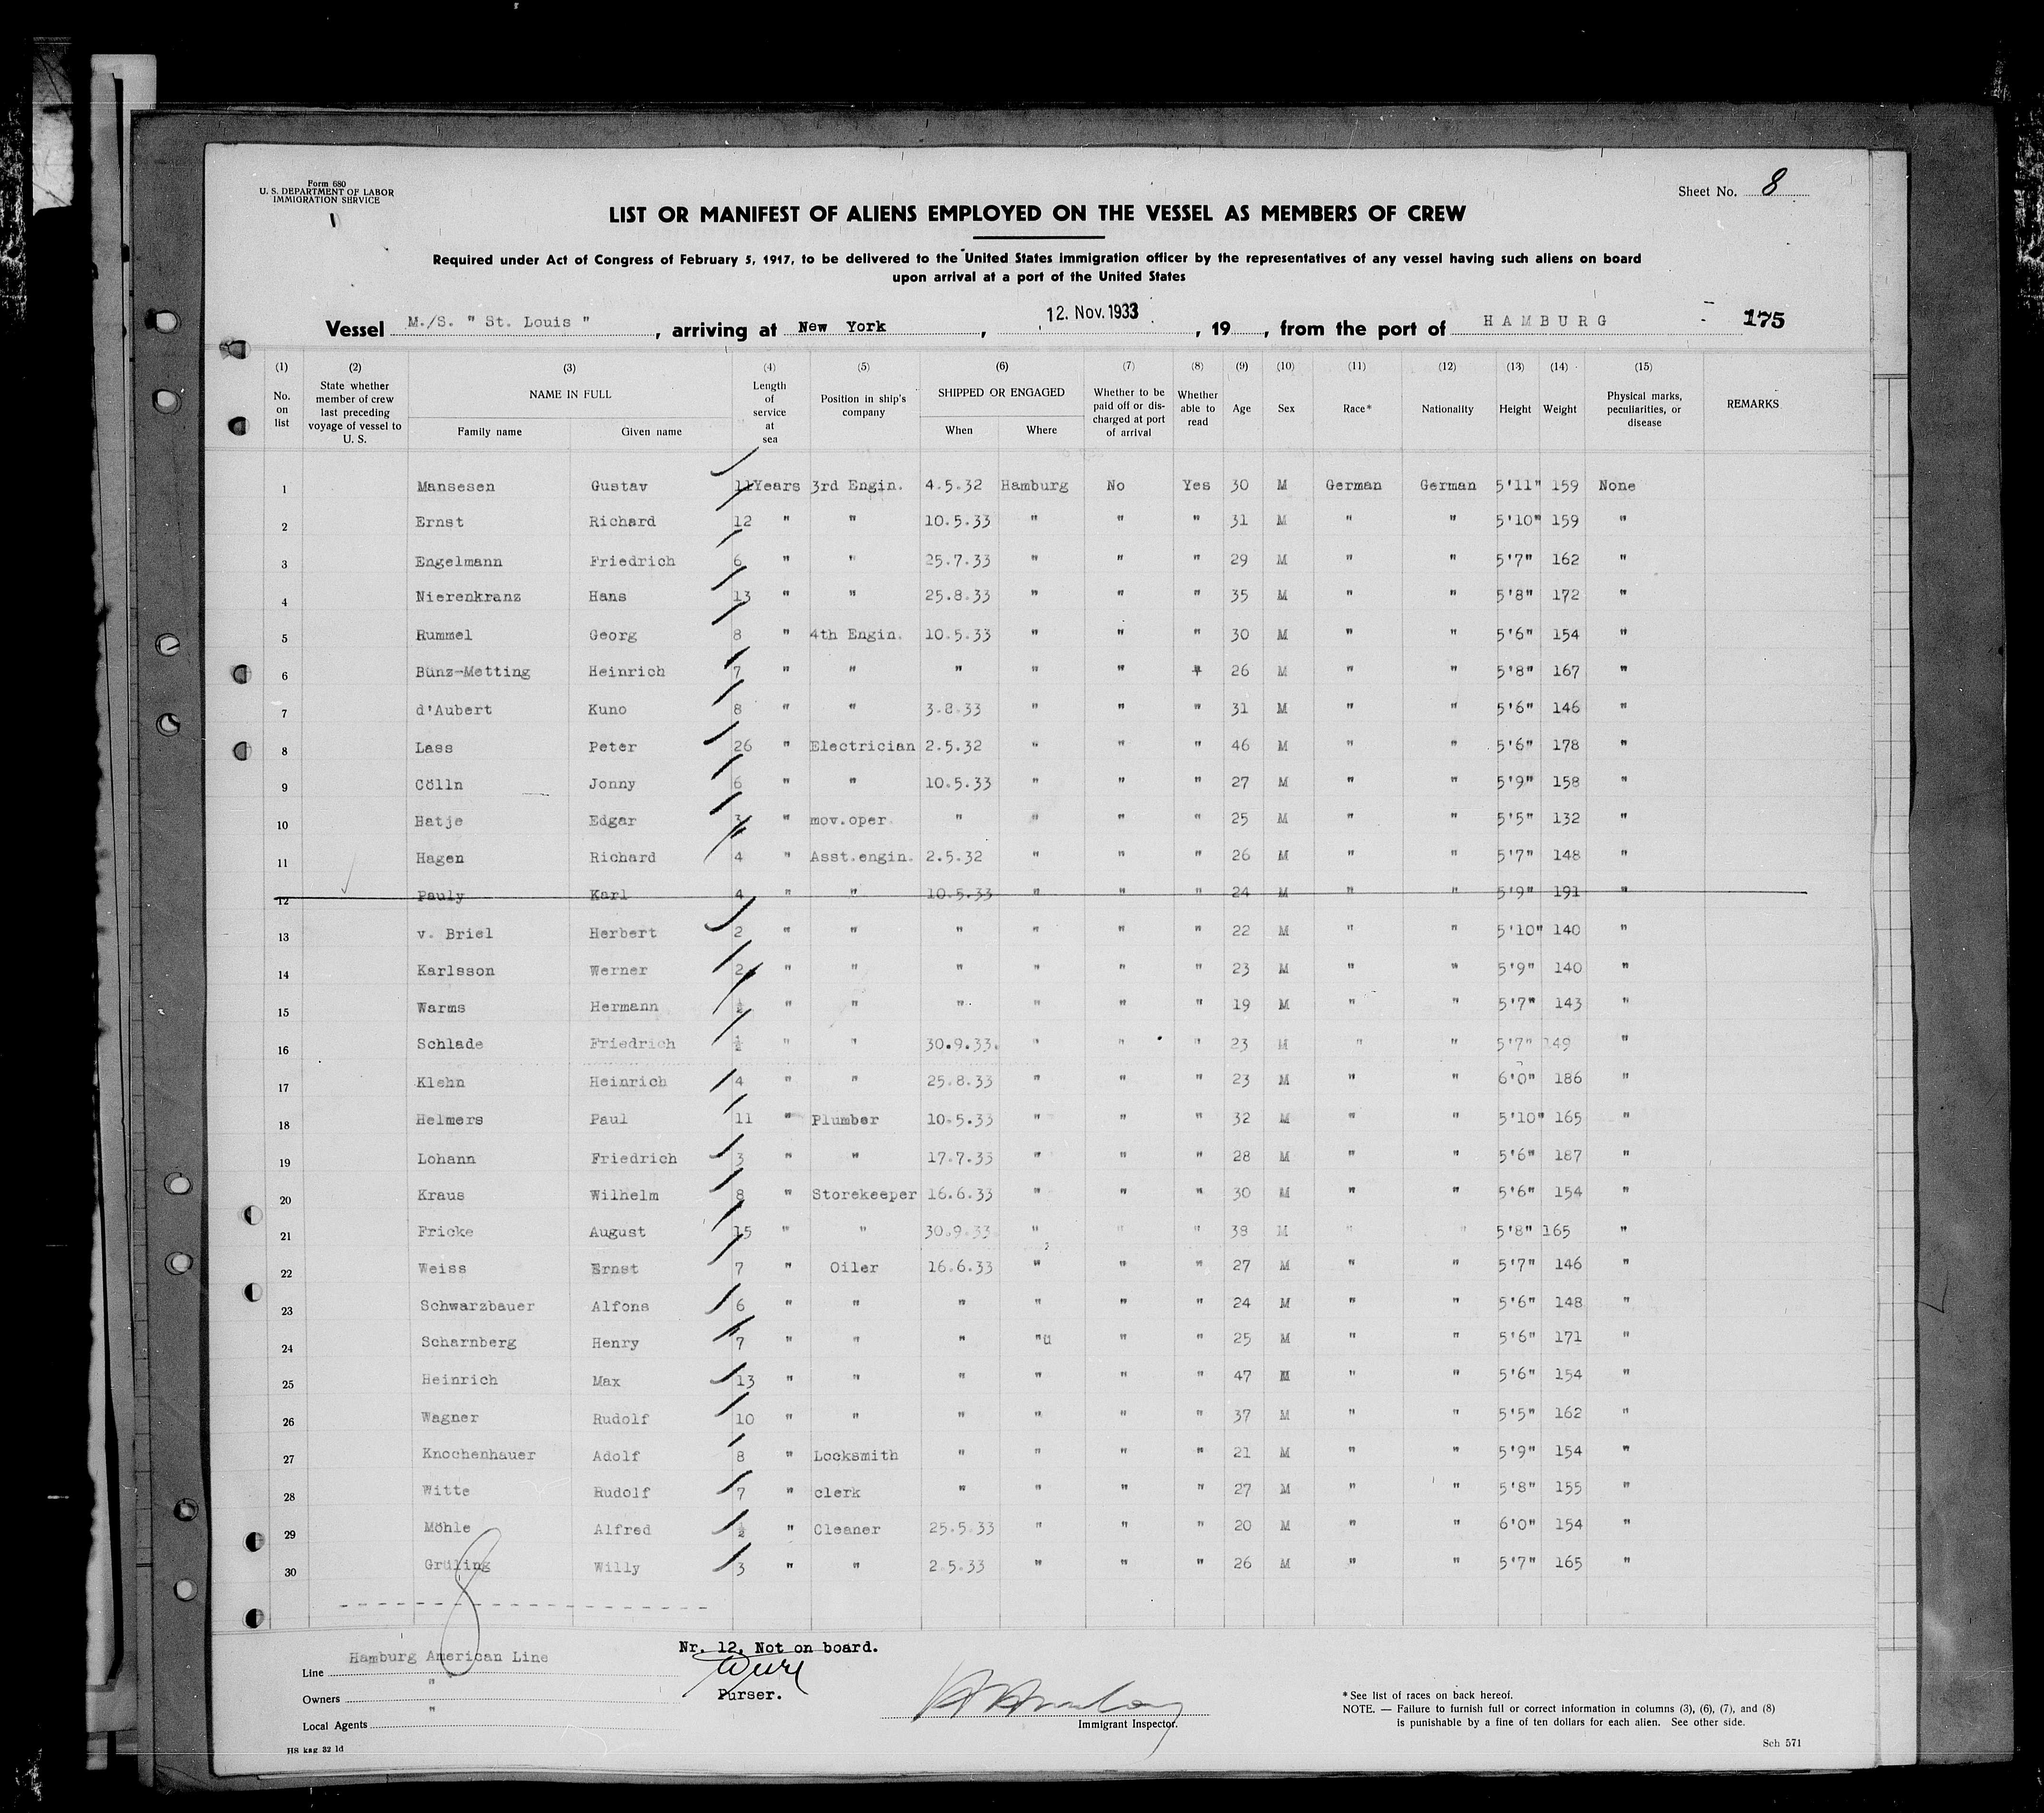 Form 680
U. S. DEPARTMENT OF LABOR
IMMIGRATION SERVICE
1
Sheet No. 8
LIST OR MANIFEST OF ALIENS EMPLOYED ON THE VESSEL AS MEMBERS OF CREW
Required under Act of Congress of February 5, 1917, to be delivered to the United States immigration officer by the representatives of any vessel having such aliens on board
upon arrival at a port of the United States
Vessel M./S. " St. Louis " , arriving at New York , 12. Nov. 1933 , 19 , from the port of HAMBURG 175
(1) (2) (3) (4) (5) (6) (7) (8) (9) (10) (11) (12) (13) (14) (15)
No. on list
State whether member of crew last preceding voyage of vessel to U. S.
NAME IN FULL
Family name
Given name
Length of service at sea
Position in ship's company
SHIPPED OR ENGAGED
When
Where
Whether to be paid off or discharged at port of arrival
Whether able to read
Age
Sex
Race*
Nationality
Height
Weight
Physical marks, peculiarities, or disease
REMARKS
1 Mansesen Gustav 11 Years 3rd Engin. 4.5.32 Hamburg No Yes 30 M German German 5'11" 159 None
2 Ernst Richard 12 " " 10.5.33 " " " 31 M " " 5'10" 159 "
3 Engelmann Friedrich 6 " " 25.7.33 " " " 29 M " " 5'7" 162 "
4 Nierenkranz Hans 13 " " 25.8.33 " " " 35 M " " 5'8" 172 "
5 Rummel Georg 8 " 4th Engin. 10.5.33 " " " 30 M " " 5'6" 154 "
6 Bünz-Metting Heinrich 7 " " " " " " 26 M " " 5'8" 167 "
7 d'Aubert Kuno 8 " " 3.8.33 " " " 31 M " " 5'6" 146 "
8 Lass Peter 26 " Electrician 2.5.32 " " " 46 M " " 5'6" 178 "
9 Cölln Jonny 6 " " 10.5.33 " " " 27 M " " 5'9" 158 "
10 Hatje Edgar 3 " mov.oper. " " " " 25 M " " 5'5" 132 "
11 Hagen Richard 4 " Asst.engin. 2.5.32 " " " 26 M " " 5'7" 148 "
12 Pauly Karl 4 " " 10.5.33 " " " 24 M " " 5'9" 191 "
13 v. Briel Herbert 2 " " " " " " 22 M " " 5'10" 140 "
14 Karlsson Werner 2 " " " " " " 23 M " " 5'9" 140 "
15 Warms Hermann ½ " " " " " " 19 M " " 5'7" 143 "
16 Schlade Friedrich ½ " " 30.9.33. " " " 23 M " " 5'7" 149 "
17 Klehn Heinrich 4 " " 25.8.33 " " " 23 M " " 6'0" 186 "
18 Helmers Paul 11 " Plumber 10.5.33 " " " 32 M " " 5'10" 165 "
19 Lohann Friedrich 3 " " 17.7.33 " " " 28 M " " 5'6" 187 "
20 Kraus Wilhelm 8 " Storekeeper 16.6.33 " " " 30 M " " 5'6" 154 "
21 Fricke August 15 " " 30.9.33 " " " 38 M " " 5'8" 165 "
22 Weiss Ernst 7 " Oiler 16.6.33 " " " 27 M " " 5'7" 146 "
23 Schwarzbauer Alfons 6 " " " " " " 24 M " " 5'6" 148 "
24 Scharnberg Henry 7 " " " " " " 25 M " " 5'6" 171 "
25 Heinrich Max 13 " " " " " " 47 M " " 5'6" 154 "
26 Wagner Rudolf 10 " " " " " " 37 M " " 5'5" 162 "
27 Knochenhauer Adolf 8 " Locksmith " " " " 21 M " " 5'9" 154 "
28 Witte Rudolf 7 " clerk " " " " 27 M " " 5'8" 155 "
29 Möhle Alfred ½ " Cleaner 25.5.33 " " " 20 M " " 6'0" 154 "
30 Grüling Willy 3 " " 2.5.33 " " " 26 M " " 5'7" 165 "
8
Nr. 12. Not on board.
Purser.
Line Hamburg American Line
Owners "
Local Agents "
Immigrant Inspector.
* See list of races on back hereof.
NOTE. — Failure to furnish full or correct information in columns (3), (6), (7), and (8)
is punishable by a fine of ten dollars for each alien. See other side.
H8 kag 32 1d
Sch 571